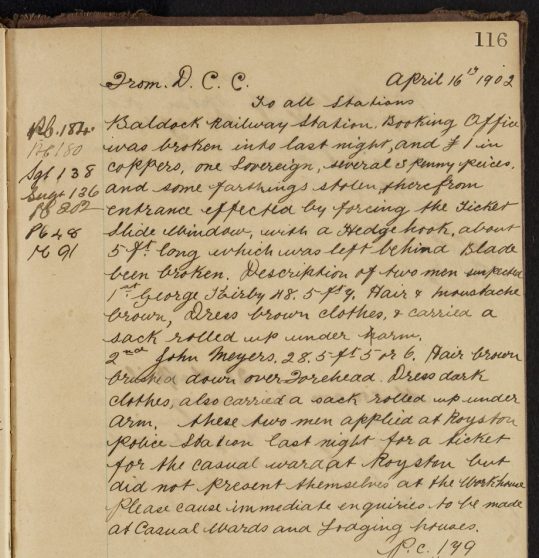 116
From. D. C. C. April 16th 1902
To all Stations
Baldock Railway Station. Booking Office
was broken into last night, and £1 in
coppers, one Sovereign, several 3 penny peices,
and some farthings stolen therefrom
entrance effected by forcing the Ticket
Slide Window, with a Hedgehook, about
5 ft. long which was left behind Blade
been broken. Description of two men suspected
1st George Kirby 48. 5 ft 9. Hair & moustache
brown, Dress brown clothes, & carried a
sack rolled up under harm.
2nd John Meyers, 28. 5 ft 5 or 6. Hair brown
brushed down over Forehead. Dress dark
clothes, also carried a sack rolled up under
arm. these two men applied at Royston
Police Station last night for a ticket
for the casual ward at Royston but
did not present themselves at the Workhouse
Please cause immediate enquiries to be made
at Casual Wards and Lodging houses.
P.c. 179
Pc. 184.
Pc 180
Sgt 138
Sergt 136
Pc 202
Pc 48
Pc 91